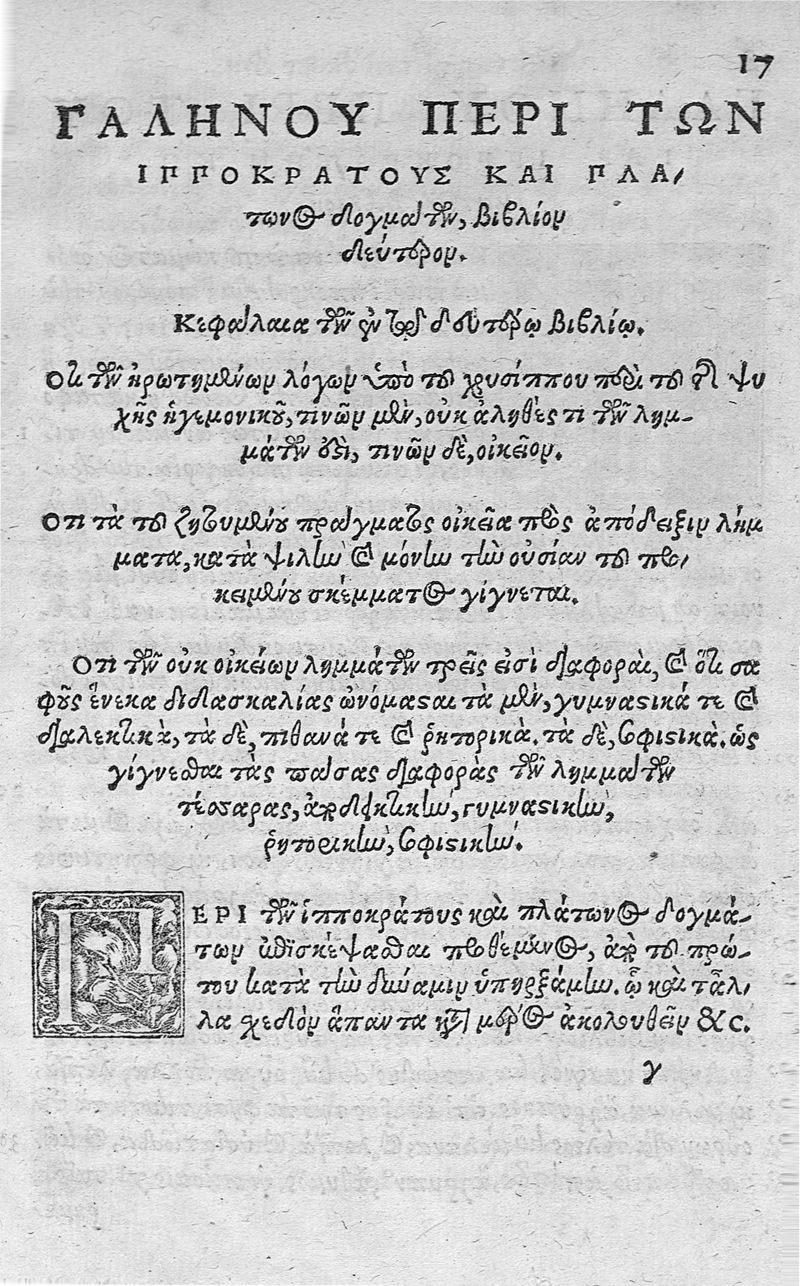 17
ΓΑΛΗΝΟΥ ΠΕΡΙ ΤΩΝ
ΙΠΠΟΚΡΑΤΟΥΣ ΚΑΙ ΠΛΑ/
τωνος δογμάτων, βιβλίον
δεύτερον.
Κεφάλαια τῶν ἐν τῷ δευτέρῳ βιβλίῳ.
Ὅτι τῶν ἠρωτημένων λόγων ὑπὸ τοῦ χρυσίππου περὶ τοῦ τῆς ψυ
χῆς ἡγεμονικοῦ, τινῶν μὲν, οὐκ ἀληθές τι τῶν λημ-
μάτων ἐστὶ, τινῶν δὲ, οἰκεῖον.
Ὅτι τὰ τοῦ ζητουμένου πράγματος οἰκεῖα πρὸς ἀπόδειξιν λήμ
ματα, κατὰ ψιλὴν καὶ μόνην τὴν οὐσίαν τοῦ προ/
κειμένου σκέμματος γίγνεται.
Ὅτι τῶν οὐκ οἰκείων λημμάτων τρεῖς εἰσὶ διαφοραὶ, καὶ ὅτι σα
φοῦς ἕνεκα διδασκαλίας ὠνόμασαι τὰ μὲν, γυμναστικά τε καὶ
διαλεκτικὰ, τὰ δὲ, πιθανά τε καὶ ῥητορικὰ. τὰ δὲ, σοφιστικὰ. ὡς
γίγνεσθαι τὰς πάσας διαφορὰς τῶν λημμάτων
τέσσαρας, ἀποδεικτικὴν, γυμναστικὴν,
ῥητορικὴν, σοφιστικὴν.
ΠΕΡΙ τῶν ἱπποκράτους καὶ πλάτωνος δογμά-
των ἐπισκέψασθαι προθέμενος, ἀπὸ τοῦ πρώ-
του κατὰ τὴν δύναμιν ὑπηρξάμην. ᾧ καὶ τἆλ/
λα σχεδὸν ἅπαντα κατὰ μέρος ἀκολουθεῖν &c.
γ